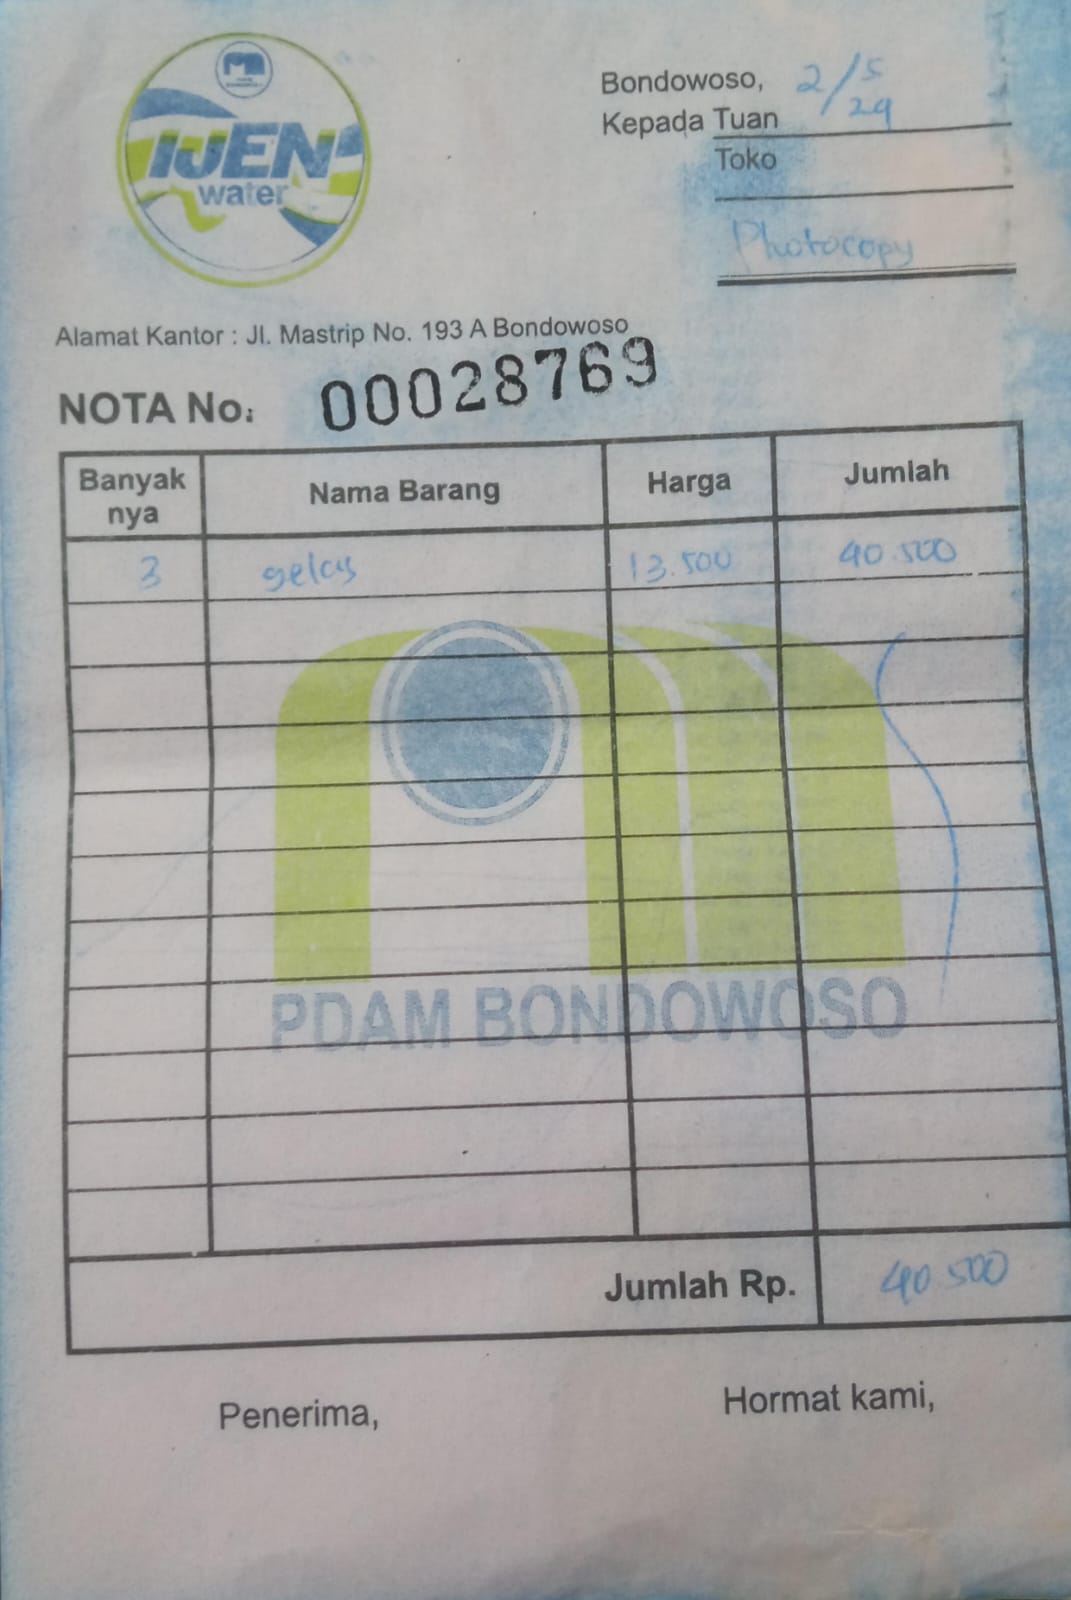 IJEN
water
Bondowoso, 2/5
Kepada Tuan 24
Toko
Photocopy
Alamat Kantor : Jl. Mastrip No. 193 A Bondowoso
NOTA No. 00028769
Banyak nya Nama Barang Harga Jumlah
3 gelas 13.500 40.500
PDAM BONDOWOSO
Jumlah Rp. 40.500
Penerima, Hormat kami,